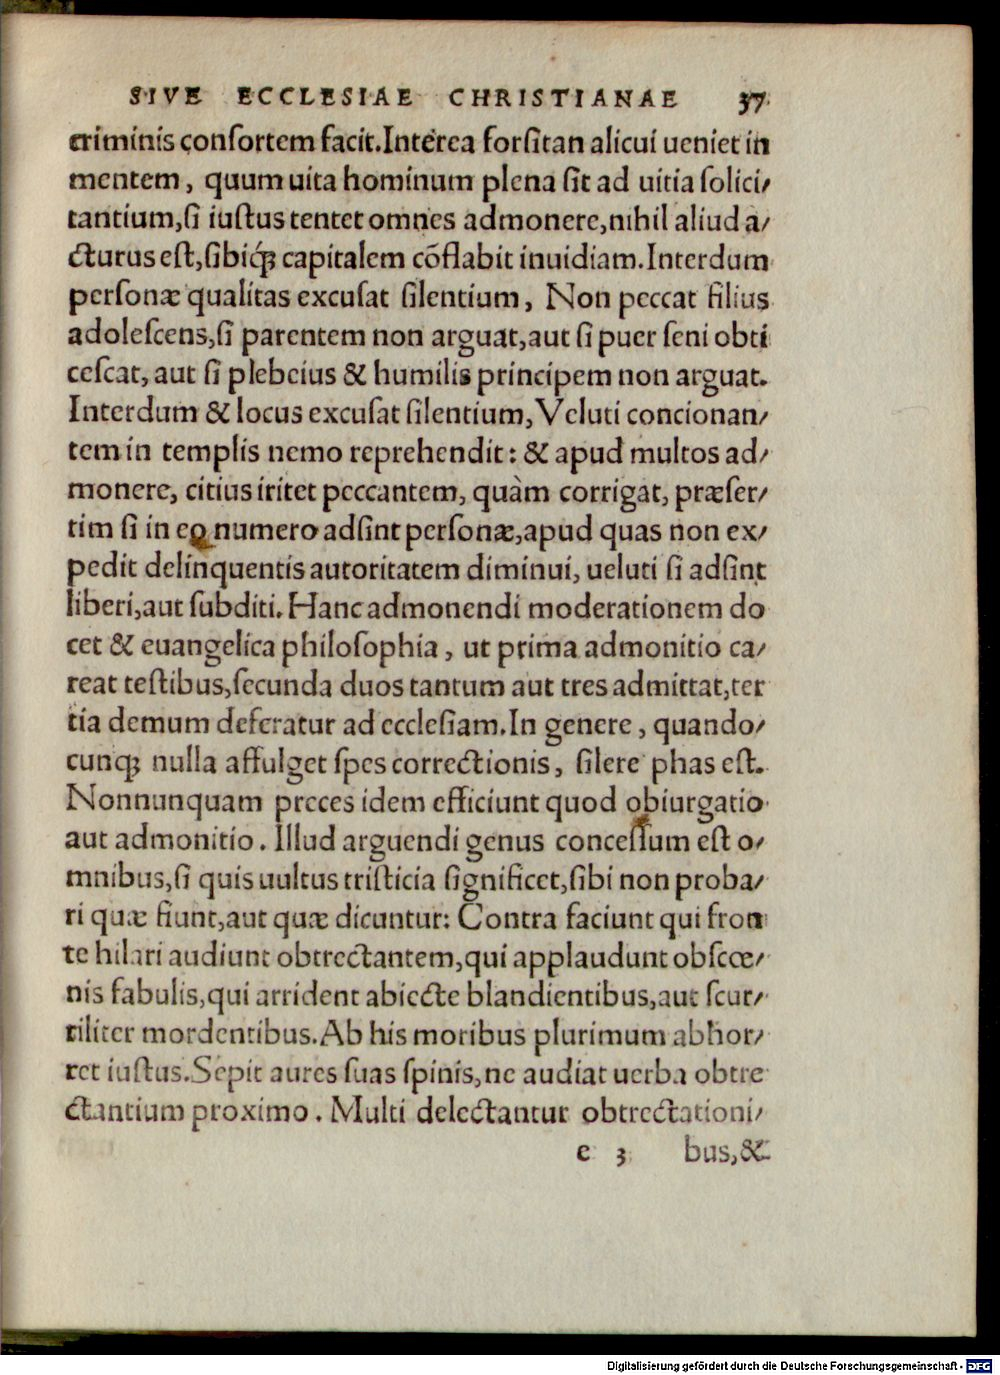 SIVE ECCLESIAE CHRISTIANAE 37
criminis consortem facit. Interea forsitan alicui ueniet in
mentem, quum uita hominum plena sit ad uitia solici/
tantium, si iustus tentet omnes admonere, nihil aliud a/
cturus est, sibiq́ꝫ capitalem cōflabit inuidiam. Interdum
personæ qualitas excusat silentium, Non peccat filius
adolescens, si parentem non arguat, aut si puer seni obti
cescat, aut si plebeius & humilis principem non arguat.
Interdum & locus excusat silentium, Veluti concionan/
tem in templis nemo reprehendit: & apud multos ad/
monere, citius iritet peccantem, quàm corrigat, præser/
tim si in eo numero adsint personæ, apud quas non ex/
pedit delinquentis autoritatem diminui, ueluti si adsint
liberi, aut subditi. Hanc admonendi moderationem do
cet & euangelica philosophia, ut prima admonitio ca/
reat testibus, secunda duos tantum aut tres admittat, ter
tia demum deferatur ad ecclesiam. In genere, quando/
cunqꝫ nulla affulget spes correctionis, silere phas est.
Nonnunquam preces idem efficiunt quod obiurgatio
aut admonitio. Illud arguendi genus concessum est o/
mnibus, si quis uultus tristicia significet, sibi non proba/
ri quæ fiunt, aut quæ dicuntur: Contra faciunt qui fron
te hilari audiunt obtrectantem, qui applaudunt obscœ/
nis fabulis, qui arrident abiecte blandientibus, aut scur/
riliter mordentibus. Ab his moribus plurimum abhor/
ret iustus. Sepit aures suas spinis, ne audiat uerba obtre
ctantium proximo. Multi delectantur obtrectationi/
e 3 bus, &
Digitalisierung gefördert durch die Deutsche Forschungsgemeinschaft - DFG